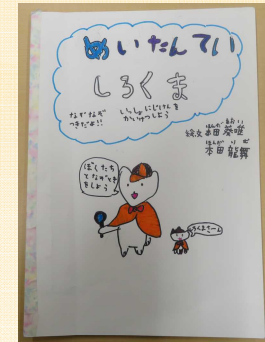 めいたんてい
しろくま
なぞなぞ
つきだよ!!
いっしょにじけんを
かいけつしよう
ほんだ
絵・文 本田 葵唯
ほんだ
本田 龍舞
ぼくたち
となぞとき
をしよう
しろくまさーん